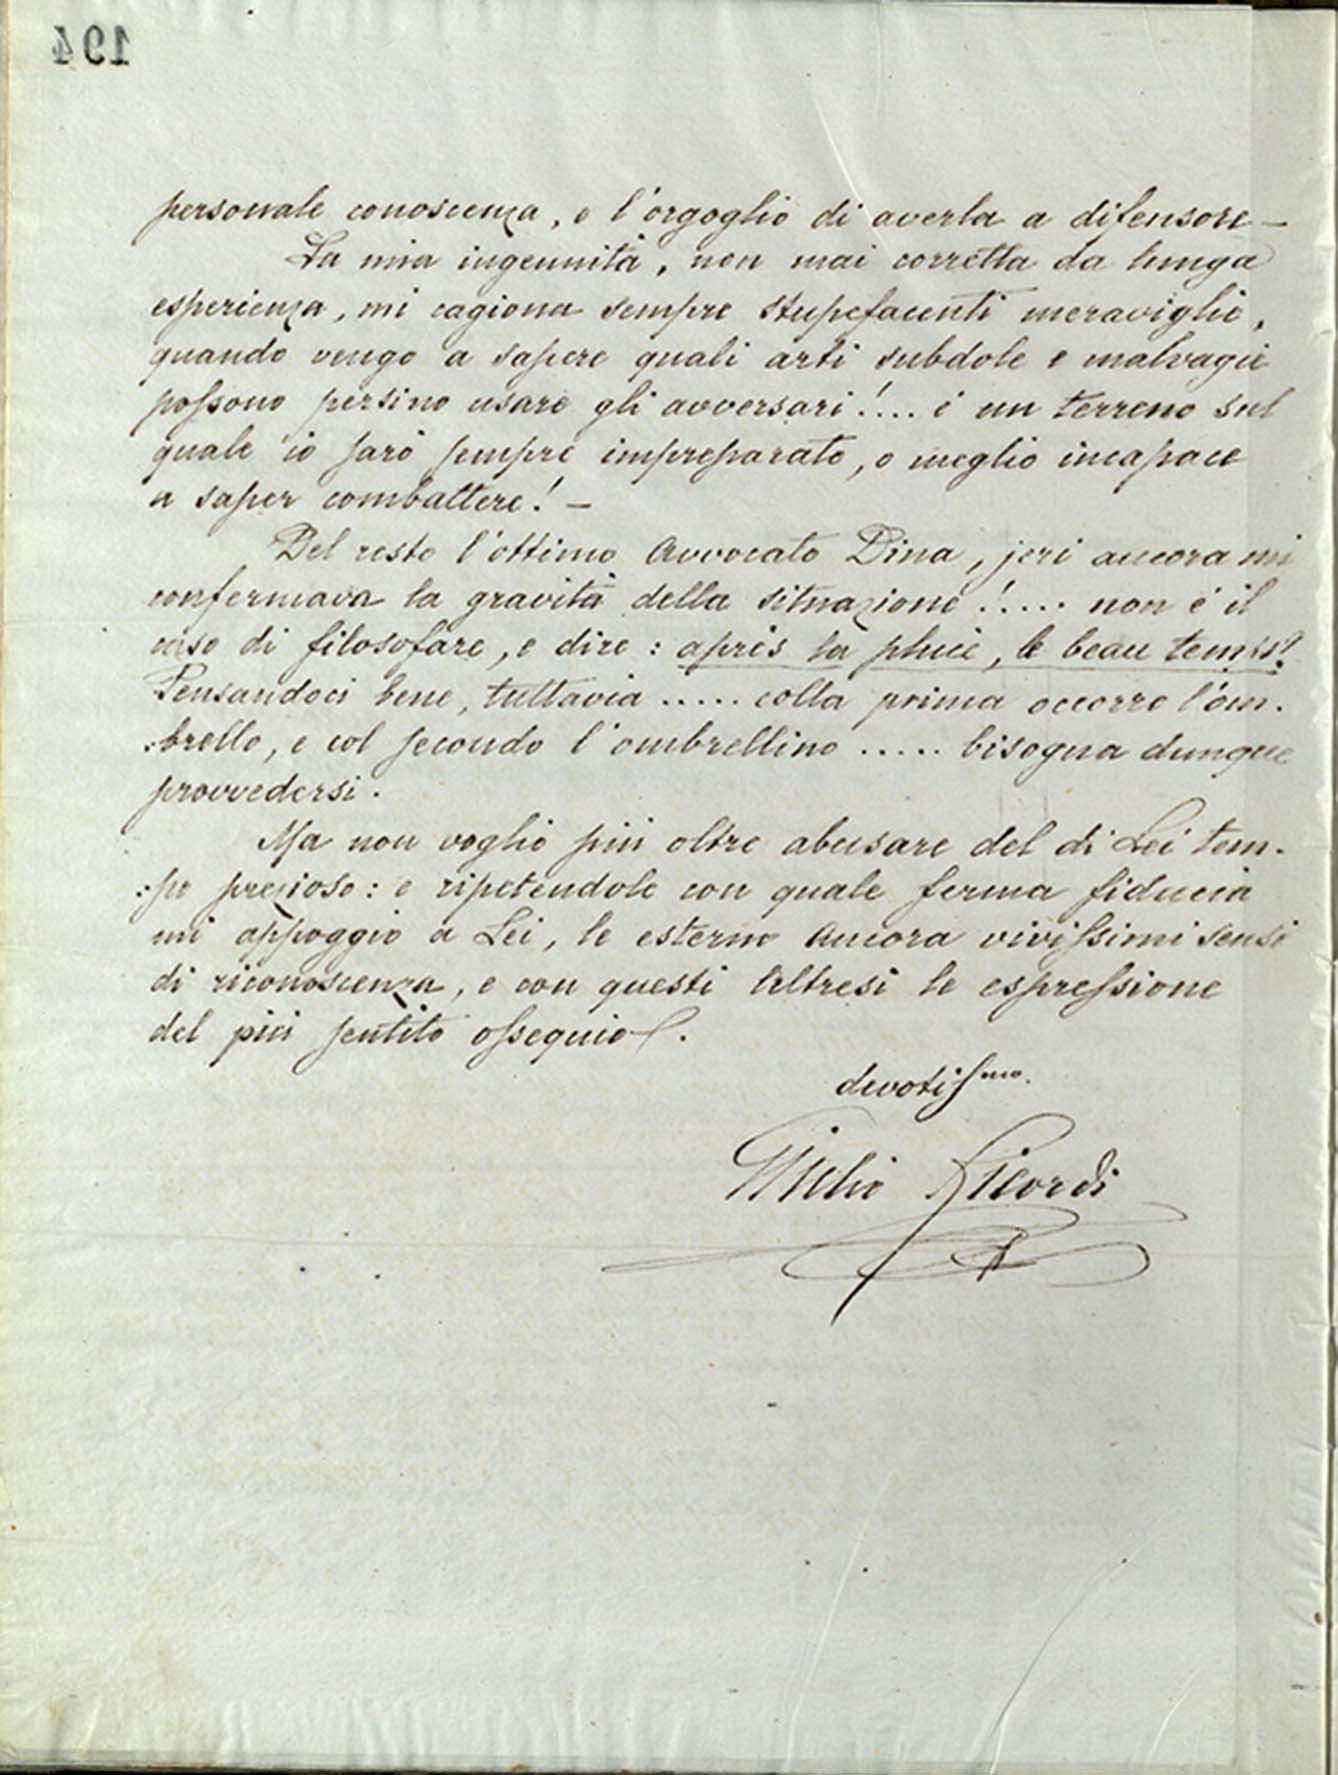 194
personale conoscenza, e l'orgoglio di averla a difensore —
La mia ingenuità, non mai corretta da lunga
esperienza, mi cagiona sempre stupefacenti meraviglie,
quando vengo a sapere quali arti subdole e malvagie
possono persino usare gli avversari!.... è un terreno sul
quale io sarò sempre impreparato, o meglio incapace
a saper combattere! —
Del resto l'ottimo Avvocato Dina, jeri ancora mi
confermava la gravità della situazione!..... non è il
caso di filosofare, e dire: après la pluie, le beau temps?
Pensandoci bene, tuttavia ..... colla prima occorre l'om-
:brello, e col secondo l'ombrellino ..... bisogna dunque
provvedersi.
Ma non voglio più oltre abusare del di Lei tem-
:po prezioso: e ripetendole con quale ferma fiducia
mi appoggio a Lei, le esterno ancora vivissimi sensi
di riconoscenza, e con questi altresì le espressione
del più sentito ossequio.
devotissmo.
Giulio Ricordi